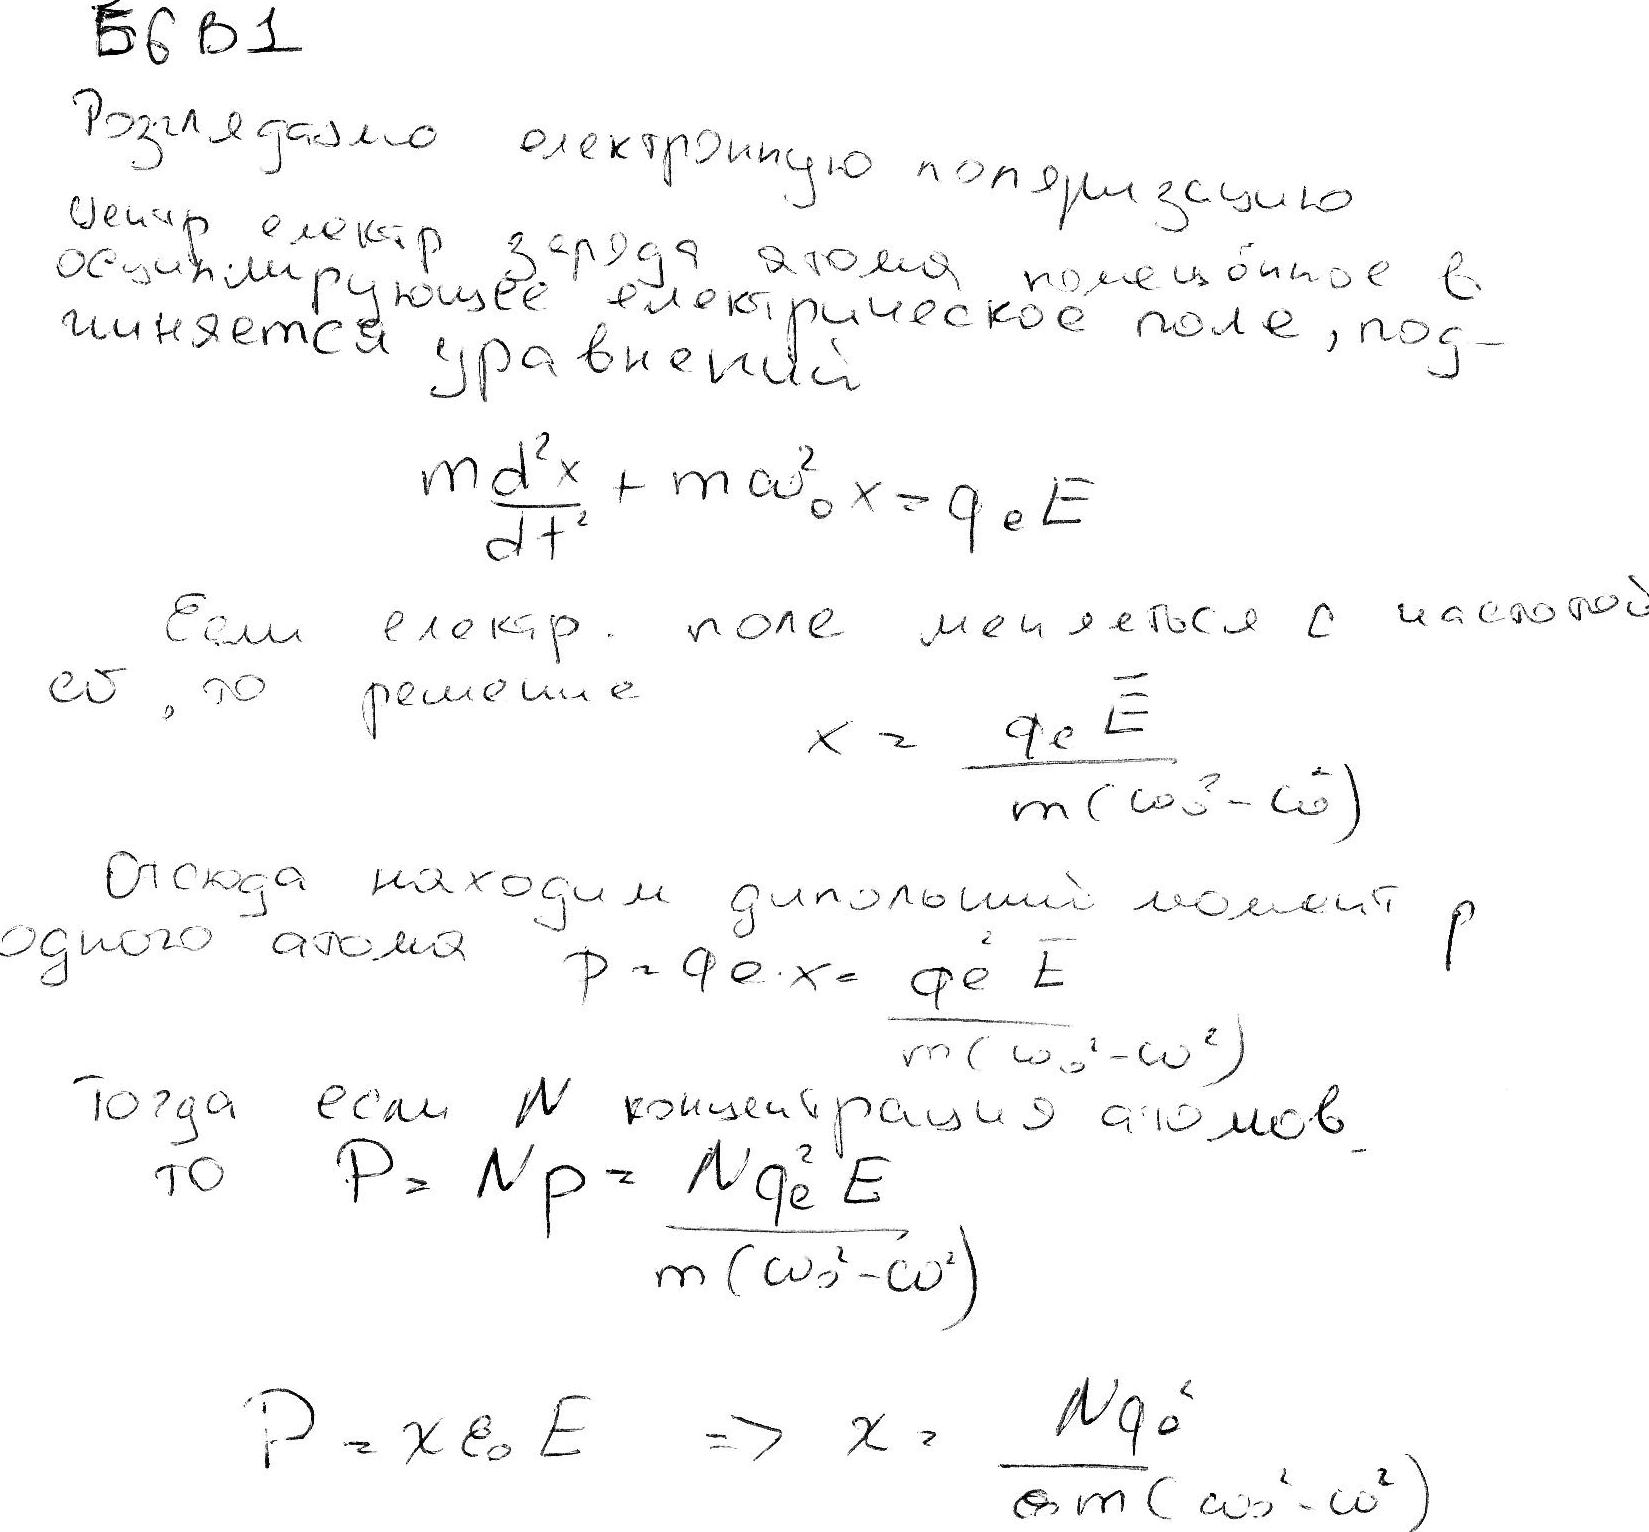 Б6В1
Розглядаємо електронную поляризацию
Центр електр заряда атома помещённое в
осциллирующее електрическое поле, под-
чиняется уравнений
m d²x/dt² + mω₀²x = qₑE
Если електр. поле меняеться с частотой
ω, то решение
x = qₑĒ / m(ω₀² - ω²)
Отсюда находим дипольний момент p
одного атома p = qₑ·x = qₑ²Ē / m(ω₀² - ω²)
Тогда если N концентрация атомов
то P = Np = Nqₑ²E / m(ω₀² - ω²)
P = χε₀E => χ = Nqₑ² / ε₀m(ω₀² - ω²)